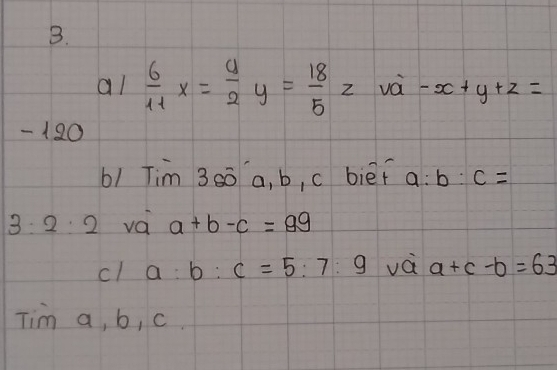 3.
a/ 6/11 x = 9/2 y = 18/5 z và -x+y+z =
-120
b/ Tìm 3 số a, b, c biết a:b:c =
3:2:2 và a+b-c = 99
c/ a:b:c = 5:7:9 và a+c-b = 63
Tìm a, b, c.